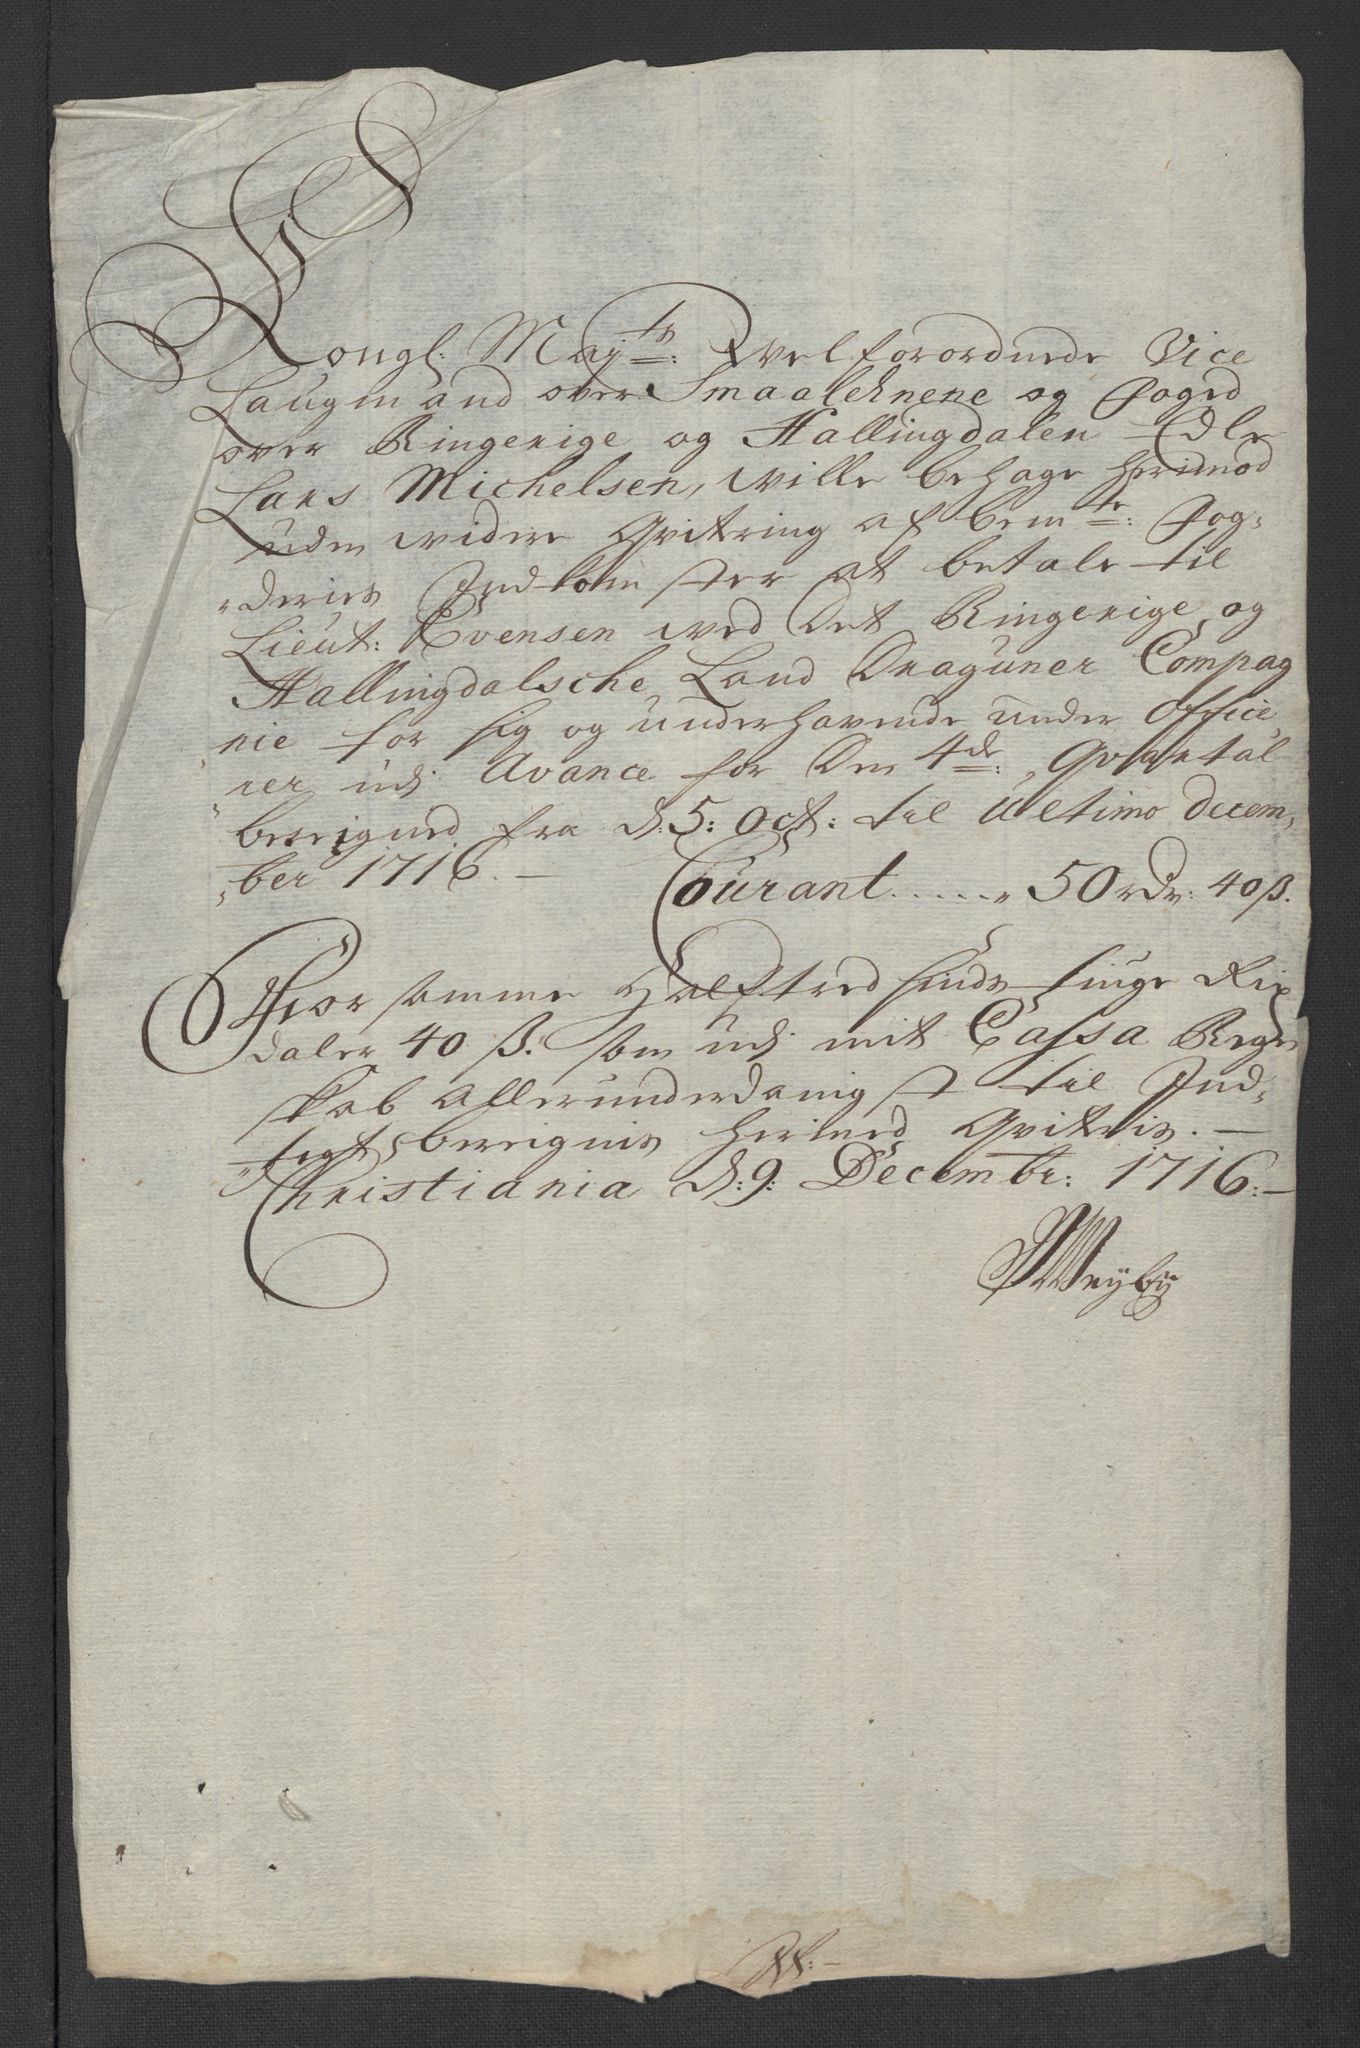 Kongl: Maj:ts velforordnede Vice
Laugmand over Smaalehnene og Foged
over Ringerige og Hallingdalen Edle
Lars Michelsen, wille behage herimod
uden widere Qvitering af bem:te Fog-
deries Indkomster at betale til
Lieut: Evensen wed Det Ringerige og
Hallingdalsche Land Draguner Compag
nie for sig og underhavende under Officie
rer udi Avance for Den 4de: Qvartal
bereigned fra d: 5: Oct: til Ultimo Decem-
ber 1716. —
Courant ...... 50 rdr: 40 ß.
Hvor somme Halftredsinds tiuge Rix
daler 40 ß. som udi mit Cassa Regn
skab allerunderdanigst til Ind-
tegt bereignis hermed Qviteris. —
Christiania d: 9: Decembr: 1716: —
Weyby